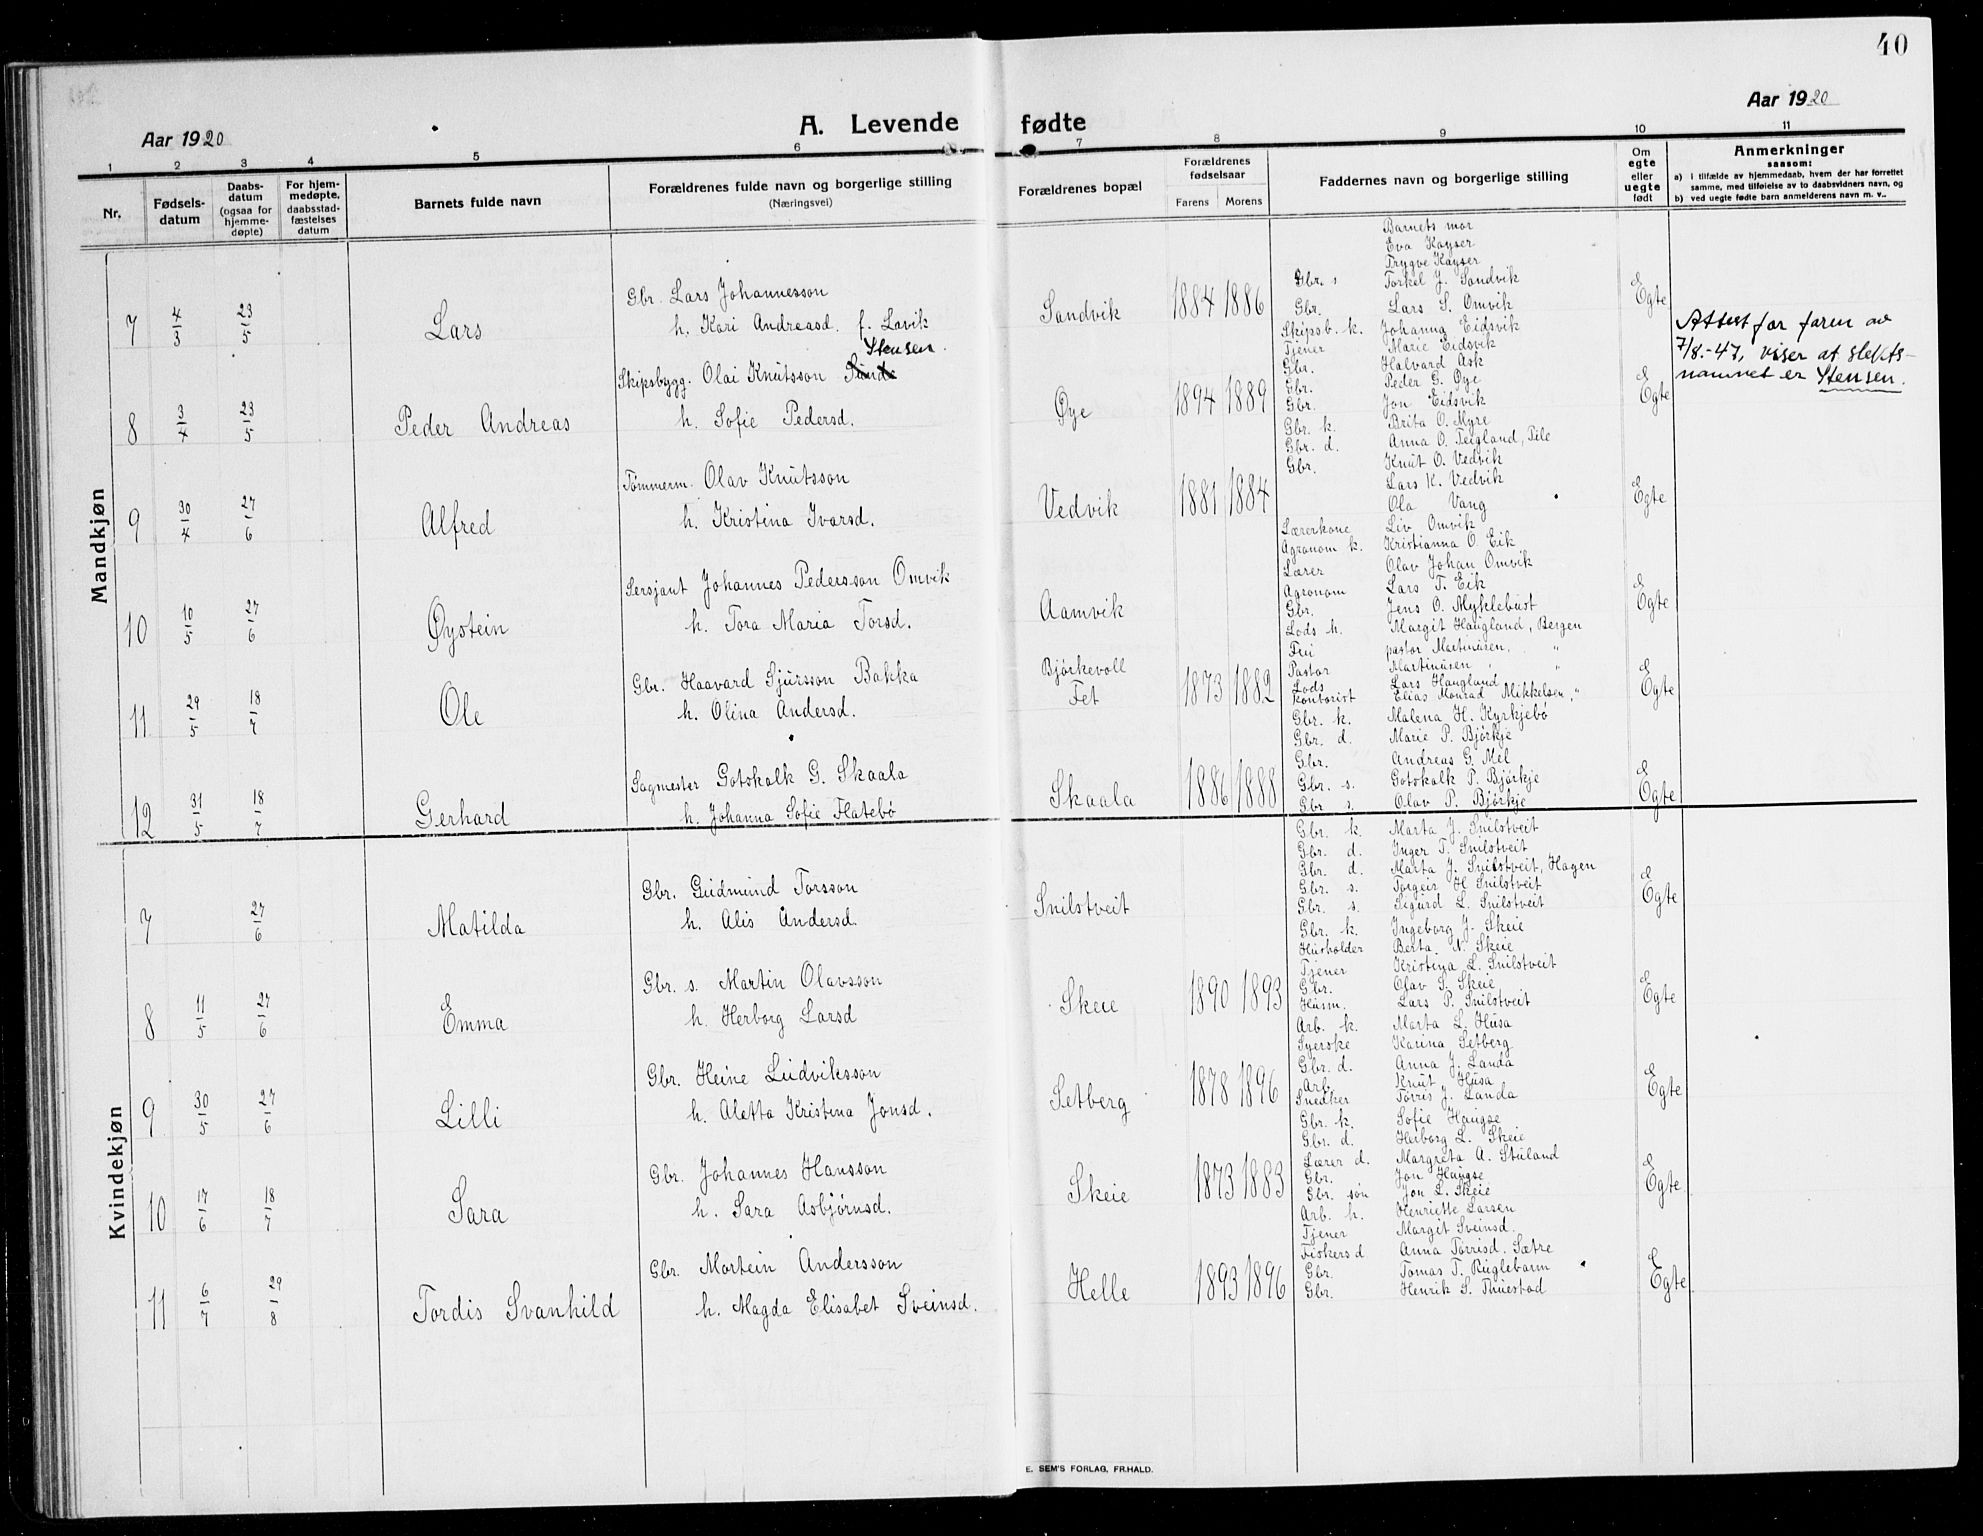 40
Aar 1920
A. Levende fødte
Aar 1920
1 2 3 4 5 6 7 8 9 10 11
Nr.
Fødsels-
datum
Daabs-
datum
(ogsaa for
hjemme-
døpte)
For hjem-
medøpte,
daabsstad-
fæstelses
datum
Barnets fulde navn
Forældrenes fulde navn og borgerlige stilling
(Næringsvei)
Forældrenes bopæl
Forældrenes
fødselsaar
Farens Morens
Faddernes navn og borgerlige stilling
Om
egte
eller
uegte
født
Anmerkninger
saasom:
a) i tilfælde av hjemmedaab, hvem der har forrettet
samme, med tilføielse av to daabsvidners navn, og
b) ved uegte fødte barn anmelderens navn m. v..
Mandkjøn
7 4/3 23/5 Lars
Gbr. Lars Johannesson
h. Kari Andreasd. f. Lavik
Sandvik 1884 1886
Barnets mor
Eva Kayser
Trygve Kayser
Gbr. s Torkel J. Sandvik
Gbr. Lars S. Omvik
Egte
8 3/4 23/5 Peder Andreas
Stensen.
Skipsbygg. Olai Knutsson Sunde
h. Sofie Pedersd.
Øye 1894 1889
Skipsb. k. Johanna Eidsvik
Tjener Marie Eidsvik
Gbr. Halvard Ask
Gbr. Peder G. Øye
Gbr. Jon Eidsvik
Egte
Attest for faren av
7/8.-47, viser at slekts-
namnet er Stensen.
9 30/4 27/6 Alfred
Tømmerm. Olav Knutsson
h. Kristina Ivarsd.
Vedvik 1881 1884
Gbr. k. Brita O. Myre
Gbr. d. Anna O. Teigland, Tile
Gbr. Knut O. Vedvik
Lars K. Vedvik
Ola Vang
Egte
10 10/5 27/6 Øystein
Sersjant Johannes Pedersson Omvik
h. Tora Maria Torsd.
Aamvik
Lærerkone Liv Omvik
Agronom k. Kristianna O. Eik
Lærer Olav Johan Omvik
Agronom Lars T. Eik
Gbr. Jens O. Myklebust
Egte
11 29/5 18/7 Ole
Gbr. Haavard Sjursson Bakka
h. Olina Andersd.
Bjørkevoll
Fet 1873 1882
Lods h. Margit Haugland, Bergen
Frü pastor Martinusen, "
Pastor Martinusen " "
Lods Lars Haugland
Kontorist Elias Monrad Mikkelsen, "
Egte
12 31/5 18/7 Gerhard
Sagmester Gotskalk G. Skaala
h. Johanna Sofie Flatebø
Skaala 1886 1888
Gbr. k. Malena H. Kyrkjebø
Gbr. d. Marie P. Bjørkje
Gbr. Andreas G. Mel
Gbr. s. Gotskalk P. Bjørkje
Gbr s. Olav P. Bjørkje
Egte
Kvindekjøn
7 27/6 Matilda
Gbr. Gudmund Torsson
h. Alis Andersd.
Snilstveit
Gbr. k. Marta J. Snilstveit
Gbr. d. Inger T. Snilstveit
Gbr. d. Marta J. Snilstveit, Hagen
Gbr. s. Torgeir H Snilstveit
Gbr. s. Sigurd L. Snilstveit
Egte
8 11/5 27/6 Emma
Gbr. s. Martin Olavsson
h. Herborg Larsd
Skeie 1890 1893
Gbr. k. Ingeborg J. Skeie
Husholder Berta N. Skeie
Tjener Kristina L. Snilstveit
Gbr. Olav S. Skeie
Husm. Lars P. Snilstveit
Egte
9 30/5 27/6 Lilli
Gbr. Heine Ludviksson
h. Aletta Kristina Jonsd.
Setberg 1878 1896
Arb. k. Marta L. Husa
Syerske Karina Setberg
Gbr. d. Anna J. Landa
Arb. Knut Husa
Snedker Torris J. Landa
Egte
10 17/6 18/7 Sara
Gbr. Johannes Hansson
h. Sara Asbjørnsd.
Skeie 1873 1883
Gbr. k. Sofie Haugse
Gbr. d. Herborg L. Skeie
Lærer d. Margreta A. Stuland
Gbr. Jon Haugse
Gbr. søn Jon L. Skeie
Egte
11 6/7 29/8 Tordis Svanhild
Gbr. Mortein Andersson
h. Magda Elisabet Sveinsd.
Helle 1893 1896
Arb. h. Henriette Larsen
Tjener Margit Sveinsd.
Fiskers d Anna Torrisd. Sætre
Gbr. Tomas T. Ruglebarm
Gbr. Henrik S. Thuestad
Egte
E. SEM'S FORLAG, FR.HALD.